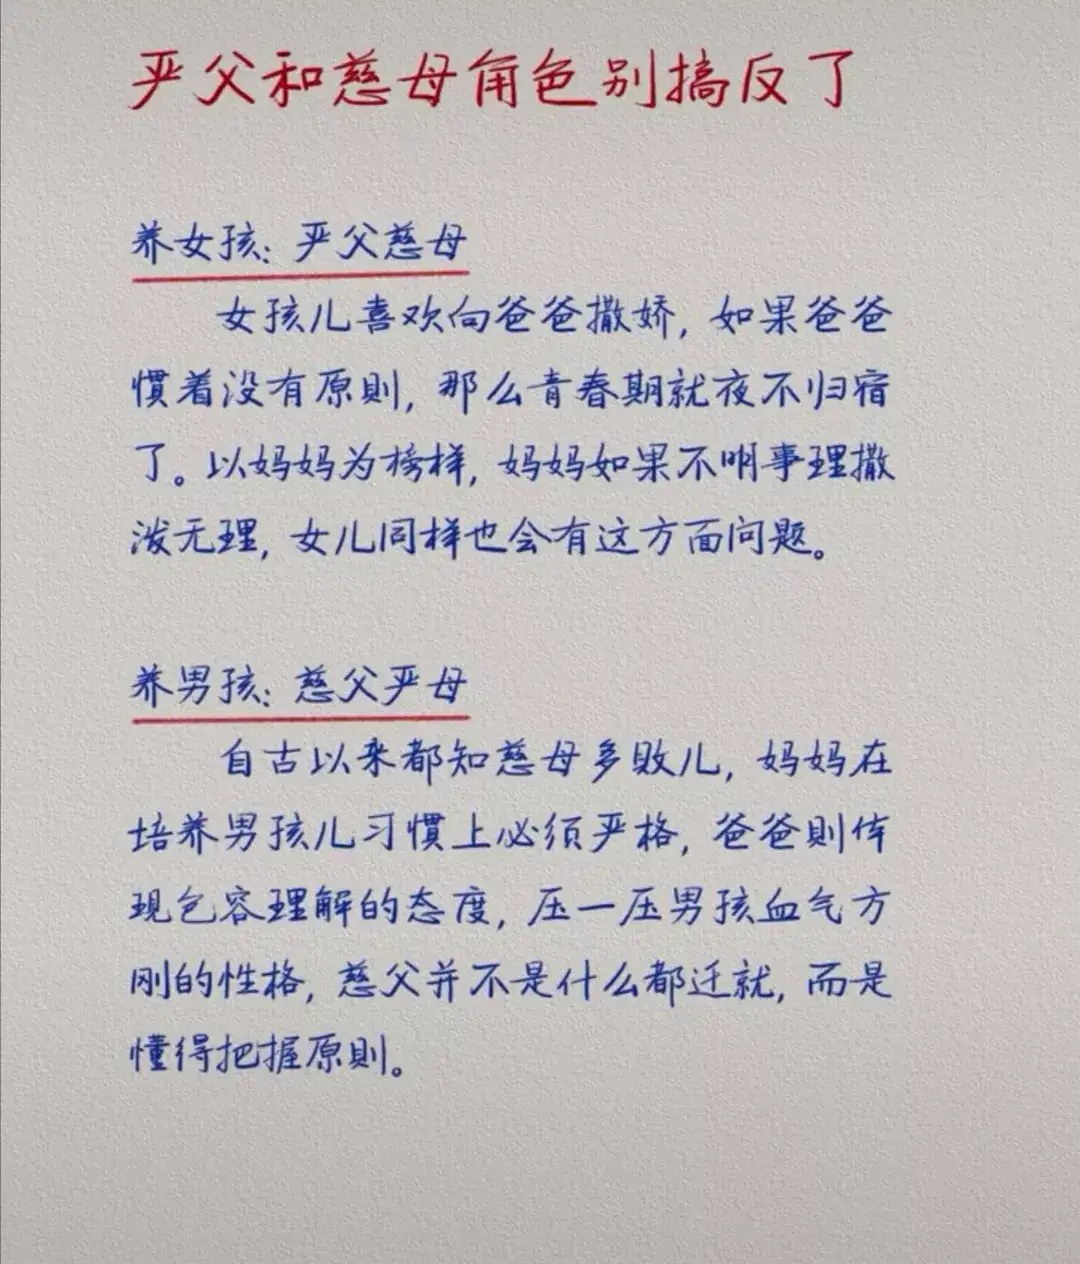 严父和慈母角色别搞反了
养女孩：严父慈母
女孩儿喜欢向爸爸撒娇，如果爸爸
惯着没有原则，那么青春期就夜不归宿
了。以妈妈为榜样，妈妈如果不明事理撒
泼无理，女儿同样也会有这方面问题。
养男孩：慈父严母
自古以来都知慈母多败儿，妈妈在
培养男孩儿习惯上必须严格，爸爸则体
现包容理解的态度，压一压男孩血气方
刚的性格，慈父并不是什么都迁就，而是
懂得把握原则。